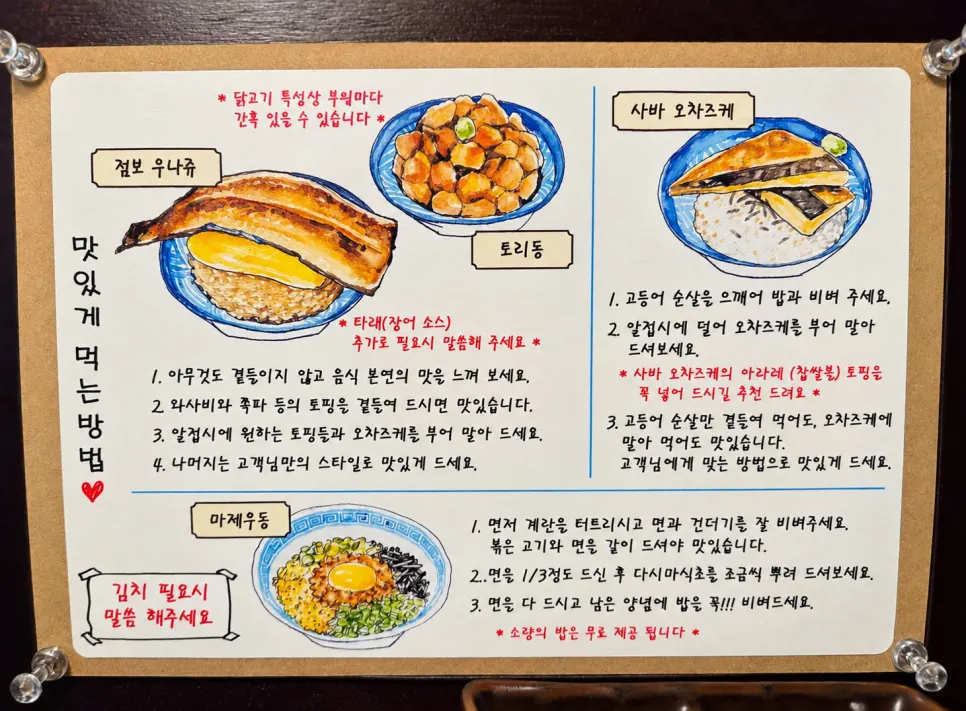 맛있게 먹는방법
* 닭고기 특성상 부위마다
간혹 있을 수 있습니다 *
점보 우나쥬
토리동
* 타래(장어 소스)
추가로 필요시 말씀해 주세요 *
1. 아무것도 곁들이지 않고 음식 본연의 맛을 느껴 보세요.
2. 와사비와 쪽파 등의 토핑을 곁들여 드시면 맛있습니다.
3. 알접시에 원하는 토핑등과 오차즈케를 부어 말아 드세요.
4. 나머지는 고객님만의 스타일로 맛있게 드세요.
사바 오차즈케
1. 고등어 순살을 으깨어 밥과 비벼 주세요.
2. 알접시에 덜어 오차즈케를 부어 말아
드셔보세요.
* 사바 오차즈케의 아라레 (찹쌀볼) 토핑을
꼭 넣어 드시길 추천 드려요 *
3. 고등어 순살만 곁들여 먹어도, 오차즈케에
말아 먹어도 맛있습니다.
고객님에게 맞는 방법으로 맛있게 드세요.
마제우동
김치 필요시
말씀 해주세요
1. 면저 계란을 터트리시고 면과 건더기를 잘 비벼주세요.
볶은 고기와 면을 같이 드셔야 맛있습니다.
2.면을 1/3정도 드신 후 다시마식초를 조금씩 뿌려 드셔보세요.
3. 면을 다 드시고 남은 양념에 밥을 꼭!!! 비벼드세요.
* 소량의 밥은 무료 제공 됩니다 *